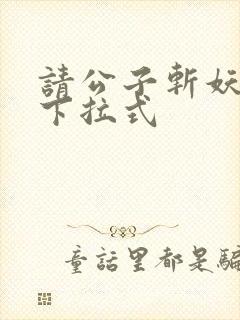 請公子斬妖
下拉式
童話里都是騙